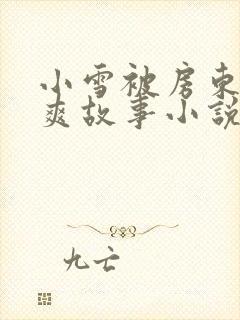 小雪被房东
爽故事小説
九亡